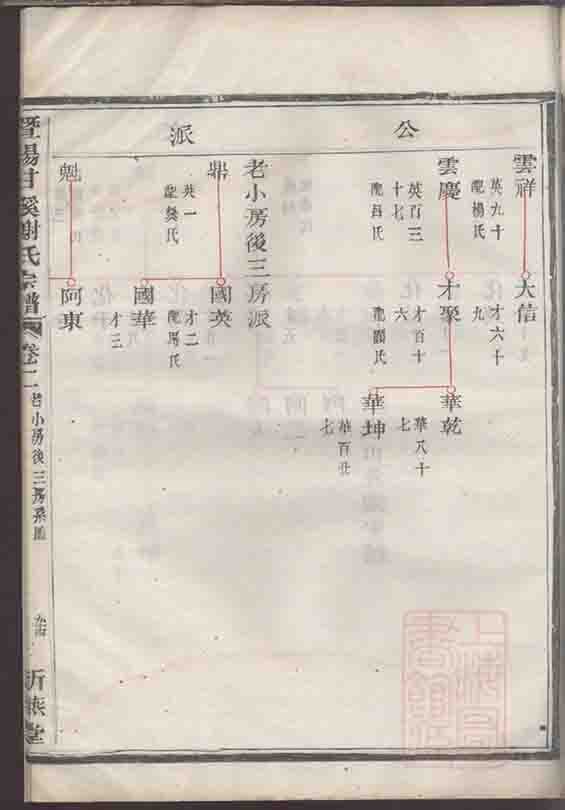 公
派
雲祥
英九十
配楊氏
大信
才六十
九
雲慶
英百三
十七
配呂氏
才聚
才百十
六
配顧氏
華乾
華八十
七
華坤
華百廿
七
老小房後三房派
鼎
英一
配樊氏
國英
才二
配馬氏
國華
才三
魁
阿東
暨陽甘溪謝氏宗譜
卷二
老小房後三房系圖